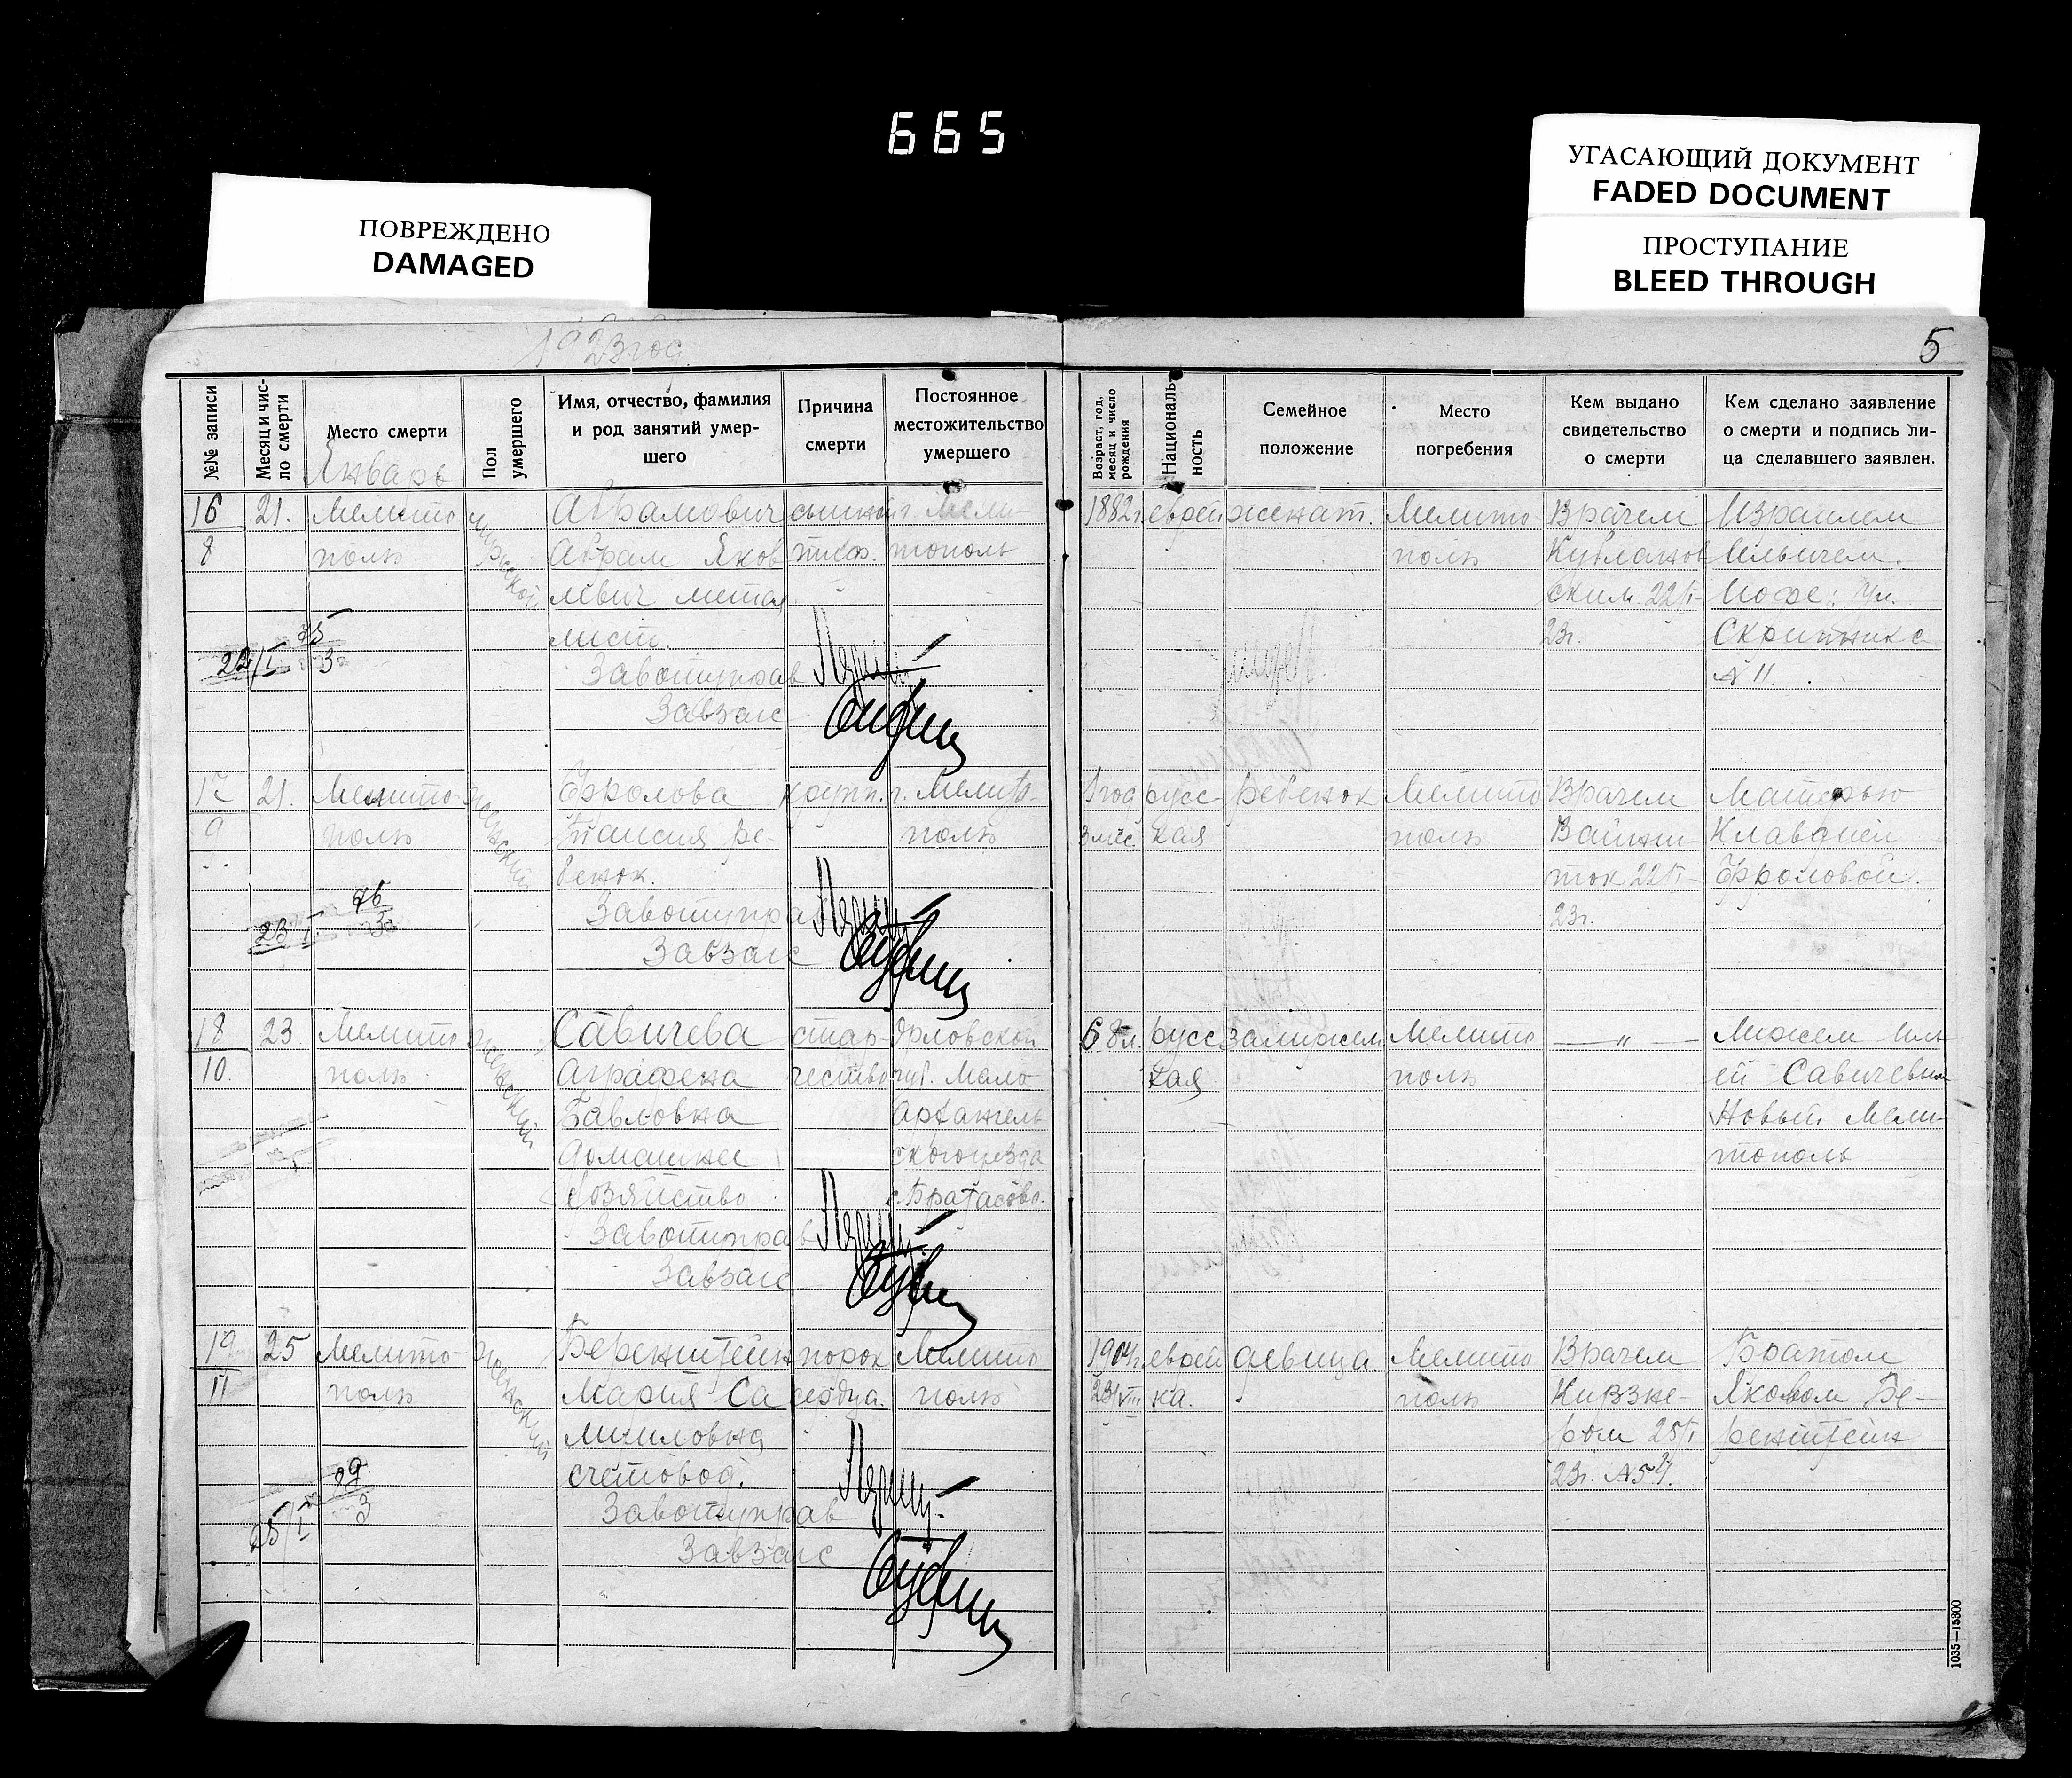 665
УГАСАЮЩИЙ ДОКУМЕНТ
FADED DOCUMENT
ПРОСТУПАНИЕ
BLEED THROUGH
ПОВРЕЖДЕНО
DAMAGED
1923 год
5
№№ записи
Месяц и число смерти
Место смерти
Январь
Пол умершего
Имя, отчество, фамилия
и род занятий умер-
шего
Причина
смерти
Постоянное
местожительство
умершего
Возраст, год,
месяц и число
рождения
Националь-
ность
Семейное
положение
Место
погребения
Кем выдано
свидетельство
о смерти
Кем сделано заявление
о смерти и подпись ли-
ца сделавшего заявлен.
16
8
21.
Мелито
поль
мужской
Абрамович
Абрам Яков
левич метал
лист.
Завотуправ
Завзагс
сыпной
тиф.
г. Мели-
тополь
22/I
75
3
1882г
еврей
женат.
Мелито
поль
Врачем
ским 22/I-
23г.
Израилем
Ильичем
Иофе: Ул.
Скрипника
№ 11.
17
9
21.
Мелито-
поль
женский
Фролова
Таисия ре-
бенок.
Завотуправ
Завзагс
крупп.
г. Мелито-
поль
23/I
76
3
1 год
3 мес.
русс-
кая
ребенок
Мелито
поль
Врачем
Вайнш
ток 22/I-
23г.
Матерью
Клавдией
Фроловой.
18
10.
23
Мелито
поль
женский
Савичева
Аграфена
Павловна
домашнее
хозяйство
Завотуправ
Завзагс
стар-
чество
Орловской
губ. Мало-
Архангель
ского уезда
68л.
русс
кая
замужем
Мелито
поль
— „ —
Мужем Иль
ей Савичевым
Новый Мели-
тополь
19
11
25
Мелито-
поль
женский
Беренштейн
Мария Са
муиловна
счетовод.
Завотуправ
Завзагс
порок
сердца.
Мелито
поль
25/I
79
3
1904г
23/VIII
еврей
ка.
девица
Мелито
поль
Врачем
ром 25/I
23г. №54.
Братом
Яковом Бе-
ренштейн
1035—15300